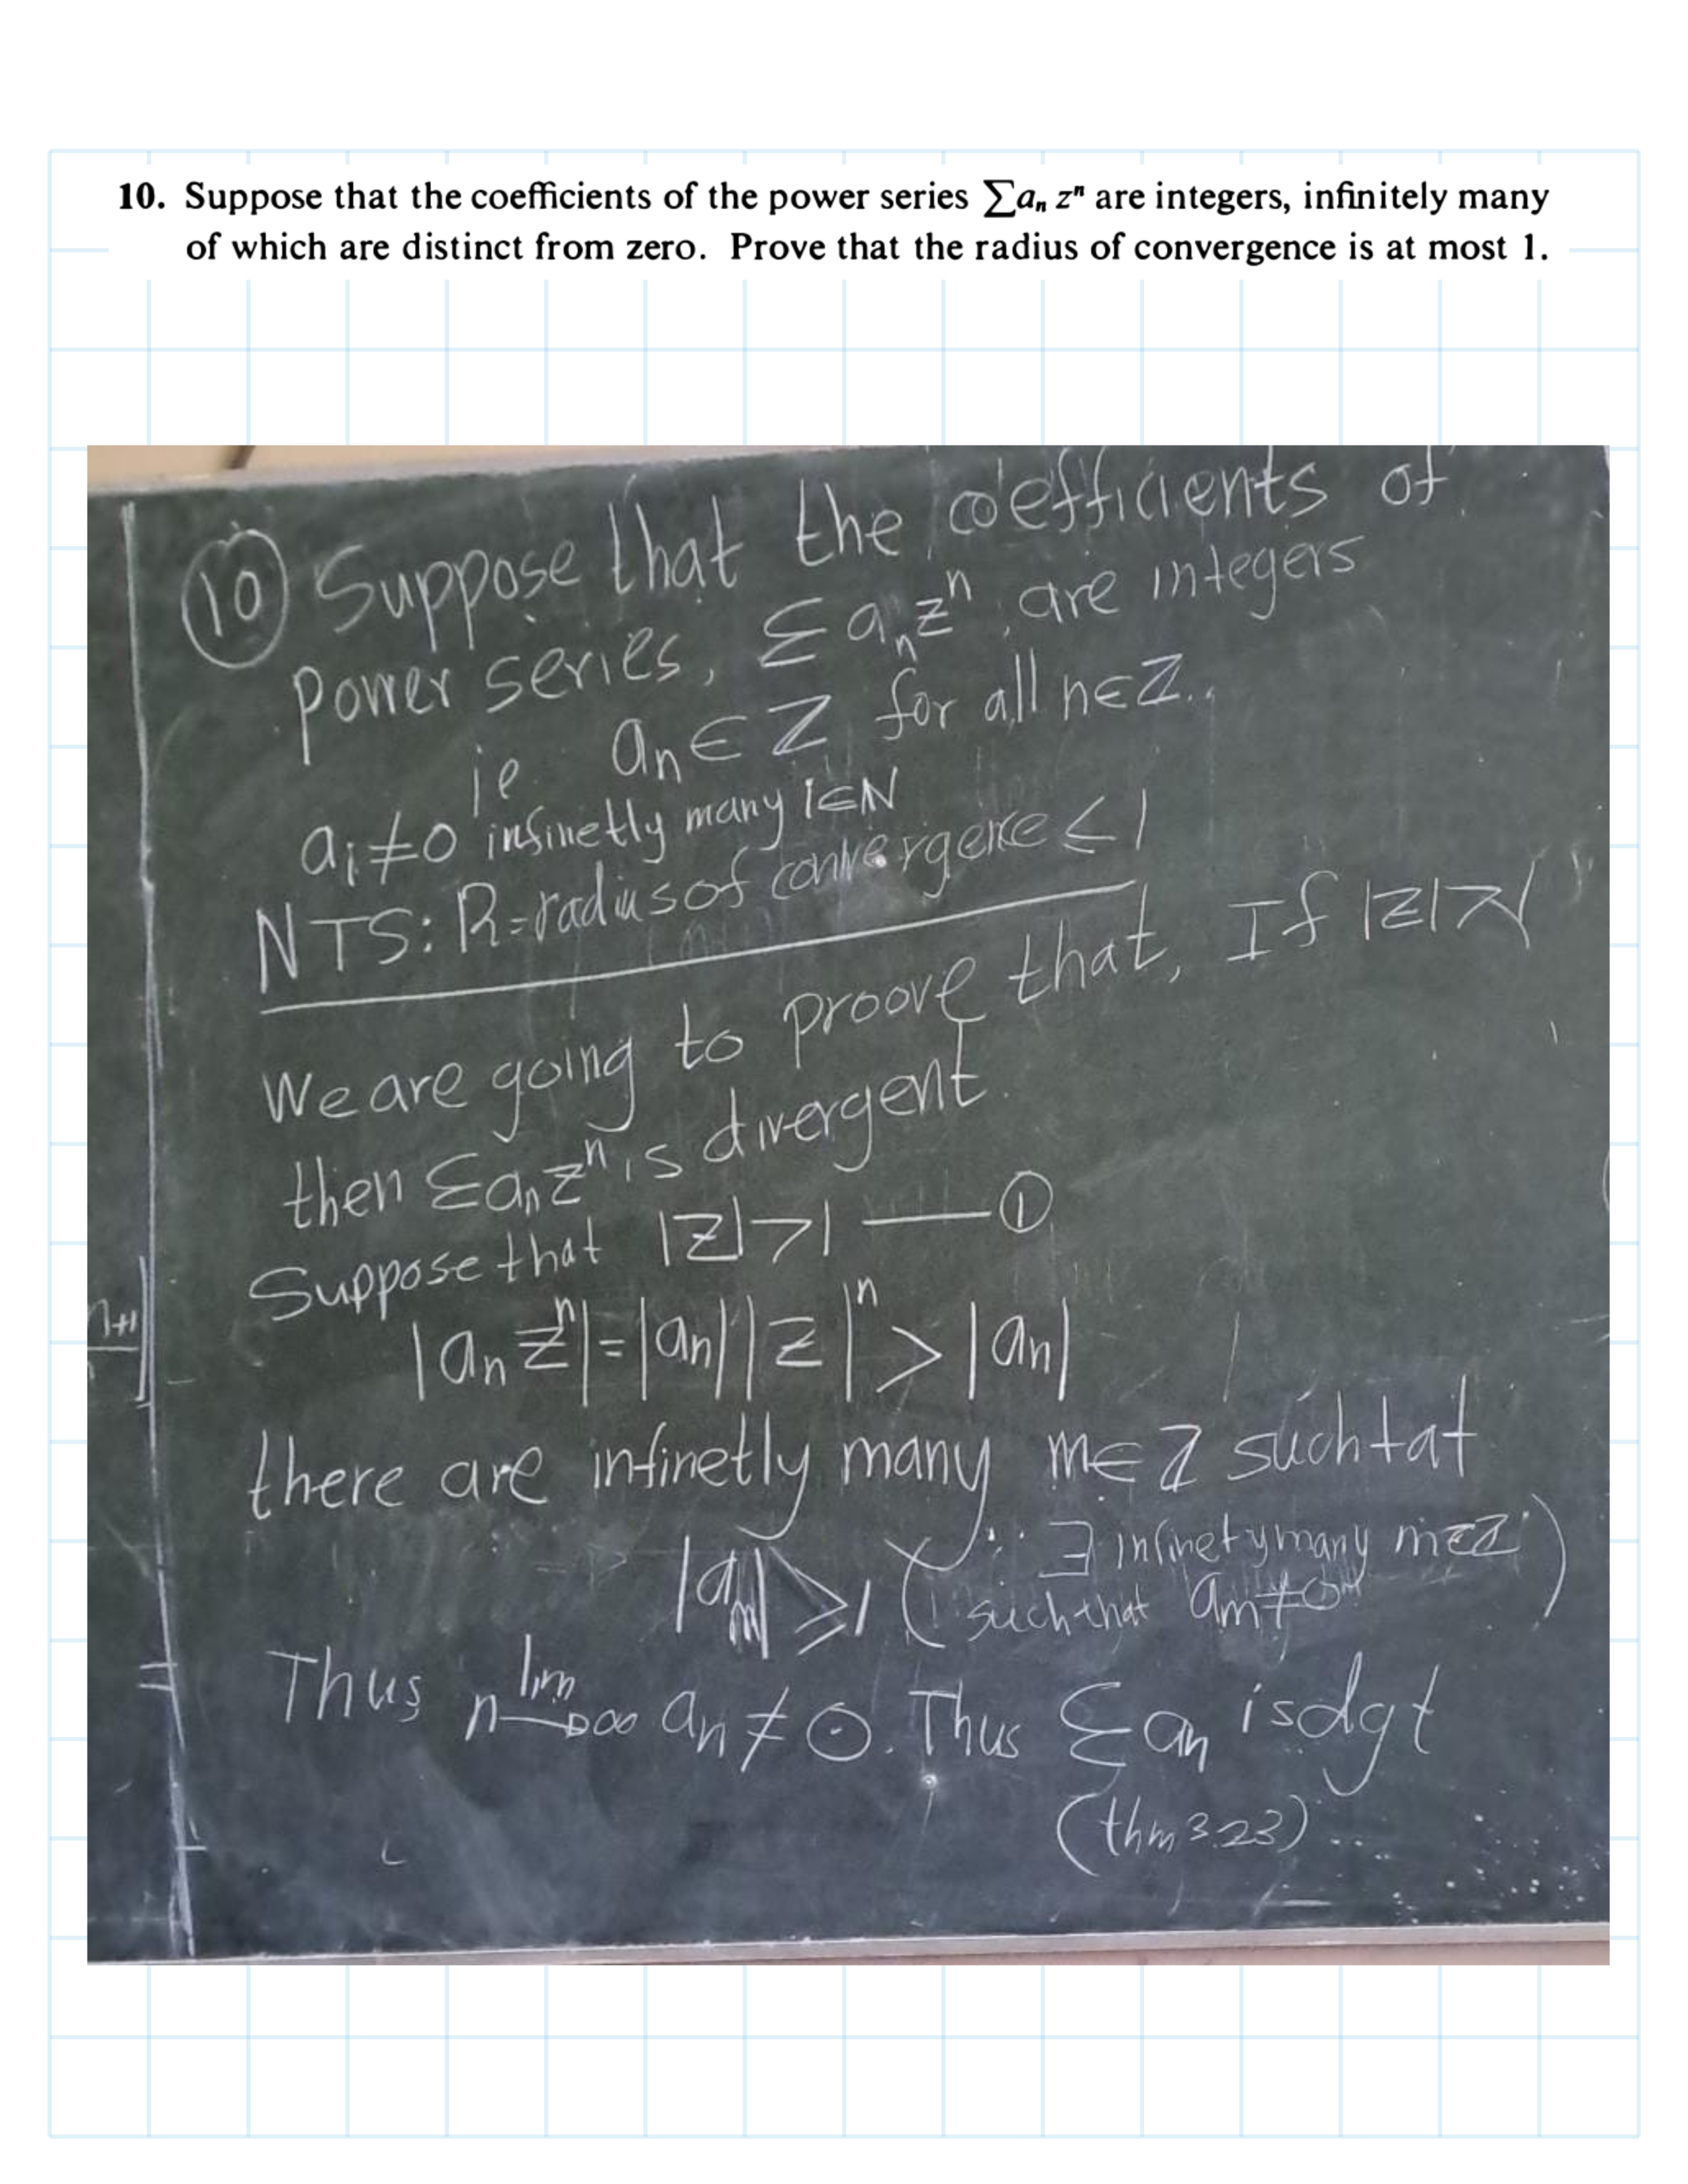 10. Suppose that the coefficients of the power series ∑aₙ zⁿ are integers, infinitely many
of which are distinct from zero. Prove that the radius of convergence is at most 1.
⑩ Suppose that the coefficients of
power series, Σaₙzⁿ, are integers
ie aₙ∈Z for all n∈Z.
aᵢ≠0 infinetly many i∈N
NTS: R=radius of convergence ≤ 1
We are going to proove that, If |z|>1
then Σaₙzⁿ is divergent.
Suppose that |z|>1 —— ①
|aₙzⁿ|=|aₙ||z|ⁿ > |aₙ|
there are infinetly many m∈Z suchtat
|aₘ|≥1 (∵ ∃ infinetymany m∈Z
such that aₘ≠0)
Thus lim n→∞ aₙ≠0. Thus Σaₙ is dgt
(thm 3.23)